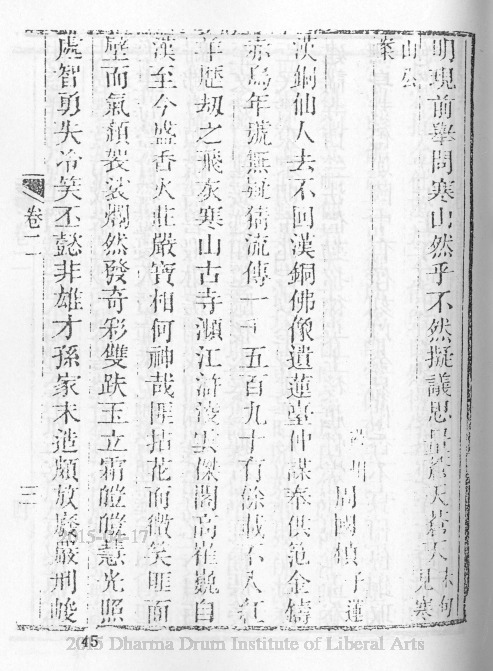 明現前舉問寒山然乎不然擬議思量蒼天蒼天末句見寒
山公
案
明周國楨子蓮
漢銅仙人去不回漢銅佛像遺蓮臺仲謀奉供范金鑄
赤烏年號無疑猜流傳一千五百九十有餘載不入紅
羊歷劫之飛灰寒山古寺瀕江滸淩雲傑閣高崔巍自
漢至今盛香火莊嚴寶相何神哉匪拈花而微笑匪面
壁而氣頹袈裟爛然發奇彩雙趺玉立霜皚皚慧光照
處智勇失冷笑丕懿非雄才孫家末造頗放廢嚴刑峻
卷二
三
2015-04-17
45
2015 Dharma Drum Institute of Liberal Arts